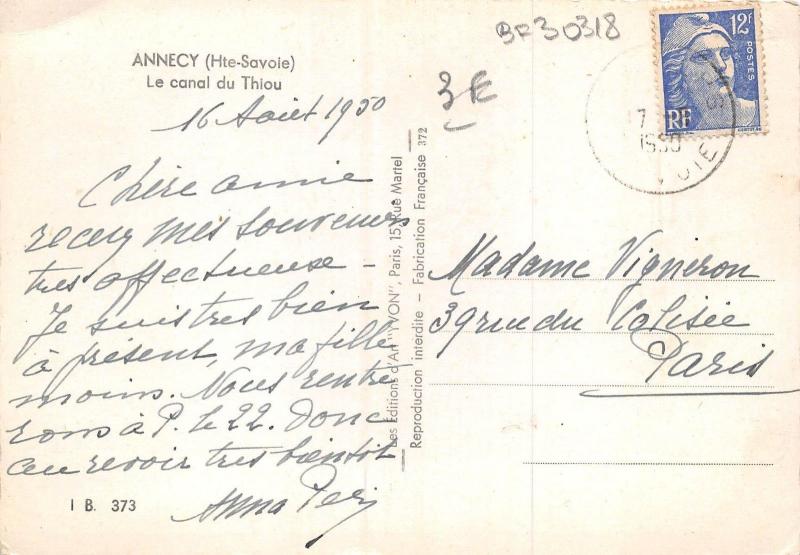 ANNECY (Hte-Savoie)
Le canal du Thiou
16 Août 1950
Chère amie
recevez mes souvenirs
très affectueuse -
Je suis très bien
à présent, ma fille
moins. Nous rentre
rons à P. le 22. Donc
au revoir très bientôt
Anna
I B. 373
Les Editions d'Art "YVON", Paris, 15, Rue Martel
Reproduction interdite – Fabrication Française 372
BF30318
3€
12F
POSTES
RF
7
1950
VOIE
Madame Vigneron
39 rue du Colisée
Paris